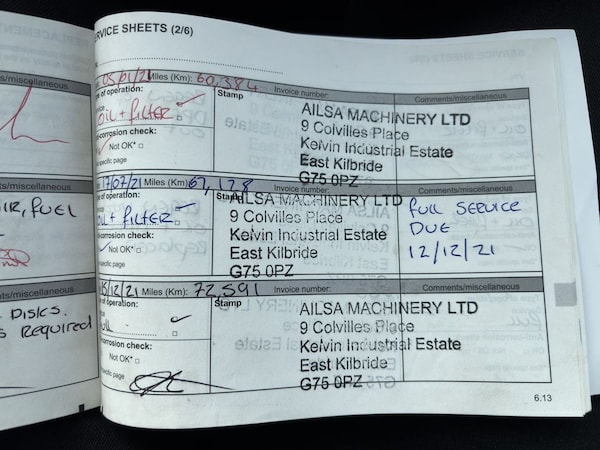 SERVICE SHEETS (2/6)
s/miscellaneous
05/01/21 Miles (Km): 60,384 Invoice number: Comments/miscellaneous
of operation: Stamp
OIL + FILTER
corrosion check:
Not OK* □
specific page
AILSA MACHINERY LTD
9 Colvilles Place
Kelvin Industrial Estate
East Kilbride
G75 0PZ
ts/miscellaneous
AIR, FUEL
17/07/21 Miles (Km): 67,128 Invoice number: Comments/miscellaneous
of operation: Stamp
OIL + FILTER
corrosion check:
Not OK* □
specific page
AILSA MACHINERY LTD
9 Colvilles Place
Kelvin Industrial Estate
East Kilbride
G75 0PZ
FULL SERVICE
DUE
12/12/21
ts/miscellaneous
DISKS.
REQUIRED
/12/21 Miles (Km): 72,591 Invoice number: Comments/miscellaneous
of operation: Stamp
FULL
corrosion check:
Not OK* □
specific page
AILSA MACHINERY LTD
9 Colvilles Place
Kelvin Industrial Estate
East Kilbride
G75 0PZ
6.13